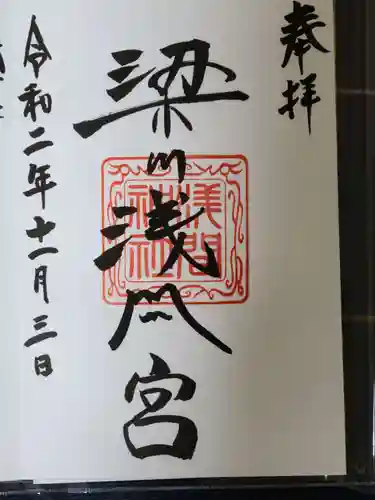 奉拝
梁川浅間宮
浅間
神社
令和二年十一月三日